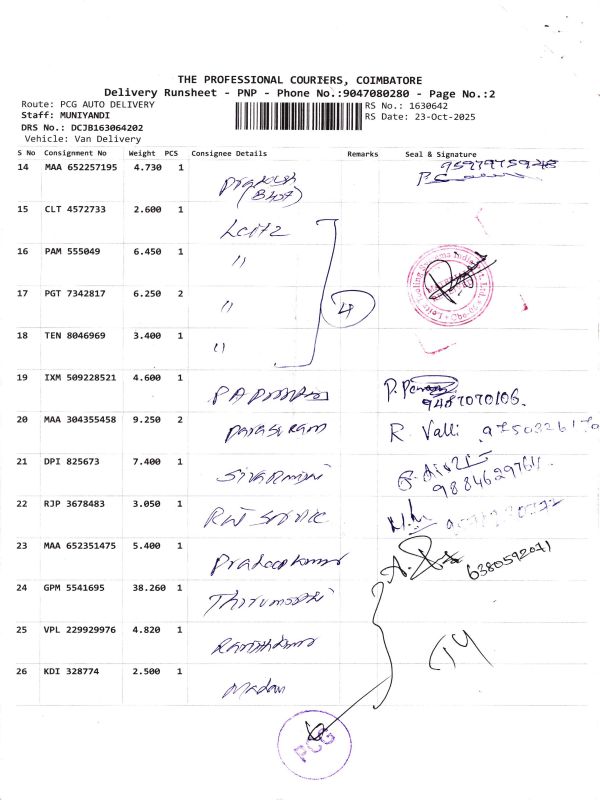 THE PROFESSIONAL COURIERS, COIMBATORE
Delivery Runsheet - PNP - Phone No.:9047080280 - Page No.:2
Route: PCG AUTO DELIVERY
RS No.: 1630642
Staff: MUNIYANDI
RS Date: 23-Oct-2025
DRS No.: DCJB163064202
Vehicle: Van Delivery
S No Consignment No Weight PCS Consignee Details Remarks Seal & Signature
14 MAA 652257195 4.730 1 Prakash
15 CLT 4572733 2.600 1 Leitz
16 PAM 555049 6.450 1 "
17 PGT 7342817 6.250 2 " 4
18 TEN 8046969 3.400 1 "
19 IXM 509228521 4.600 1 9487070106.
20 MAA 304355458 9.250 2 Parasuram R. Valli
21 DPI 825673 7.400 1 9884629764
22 RJP 3678483 3.050 1
23 MAA 652351475 5.400 1 Pradeepkumar 6380592071
24 GPM 5541695 38.260 1
25 VPL 229929976 4.820 1
26 KDI 328774 2.500 1 Madan
PCG